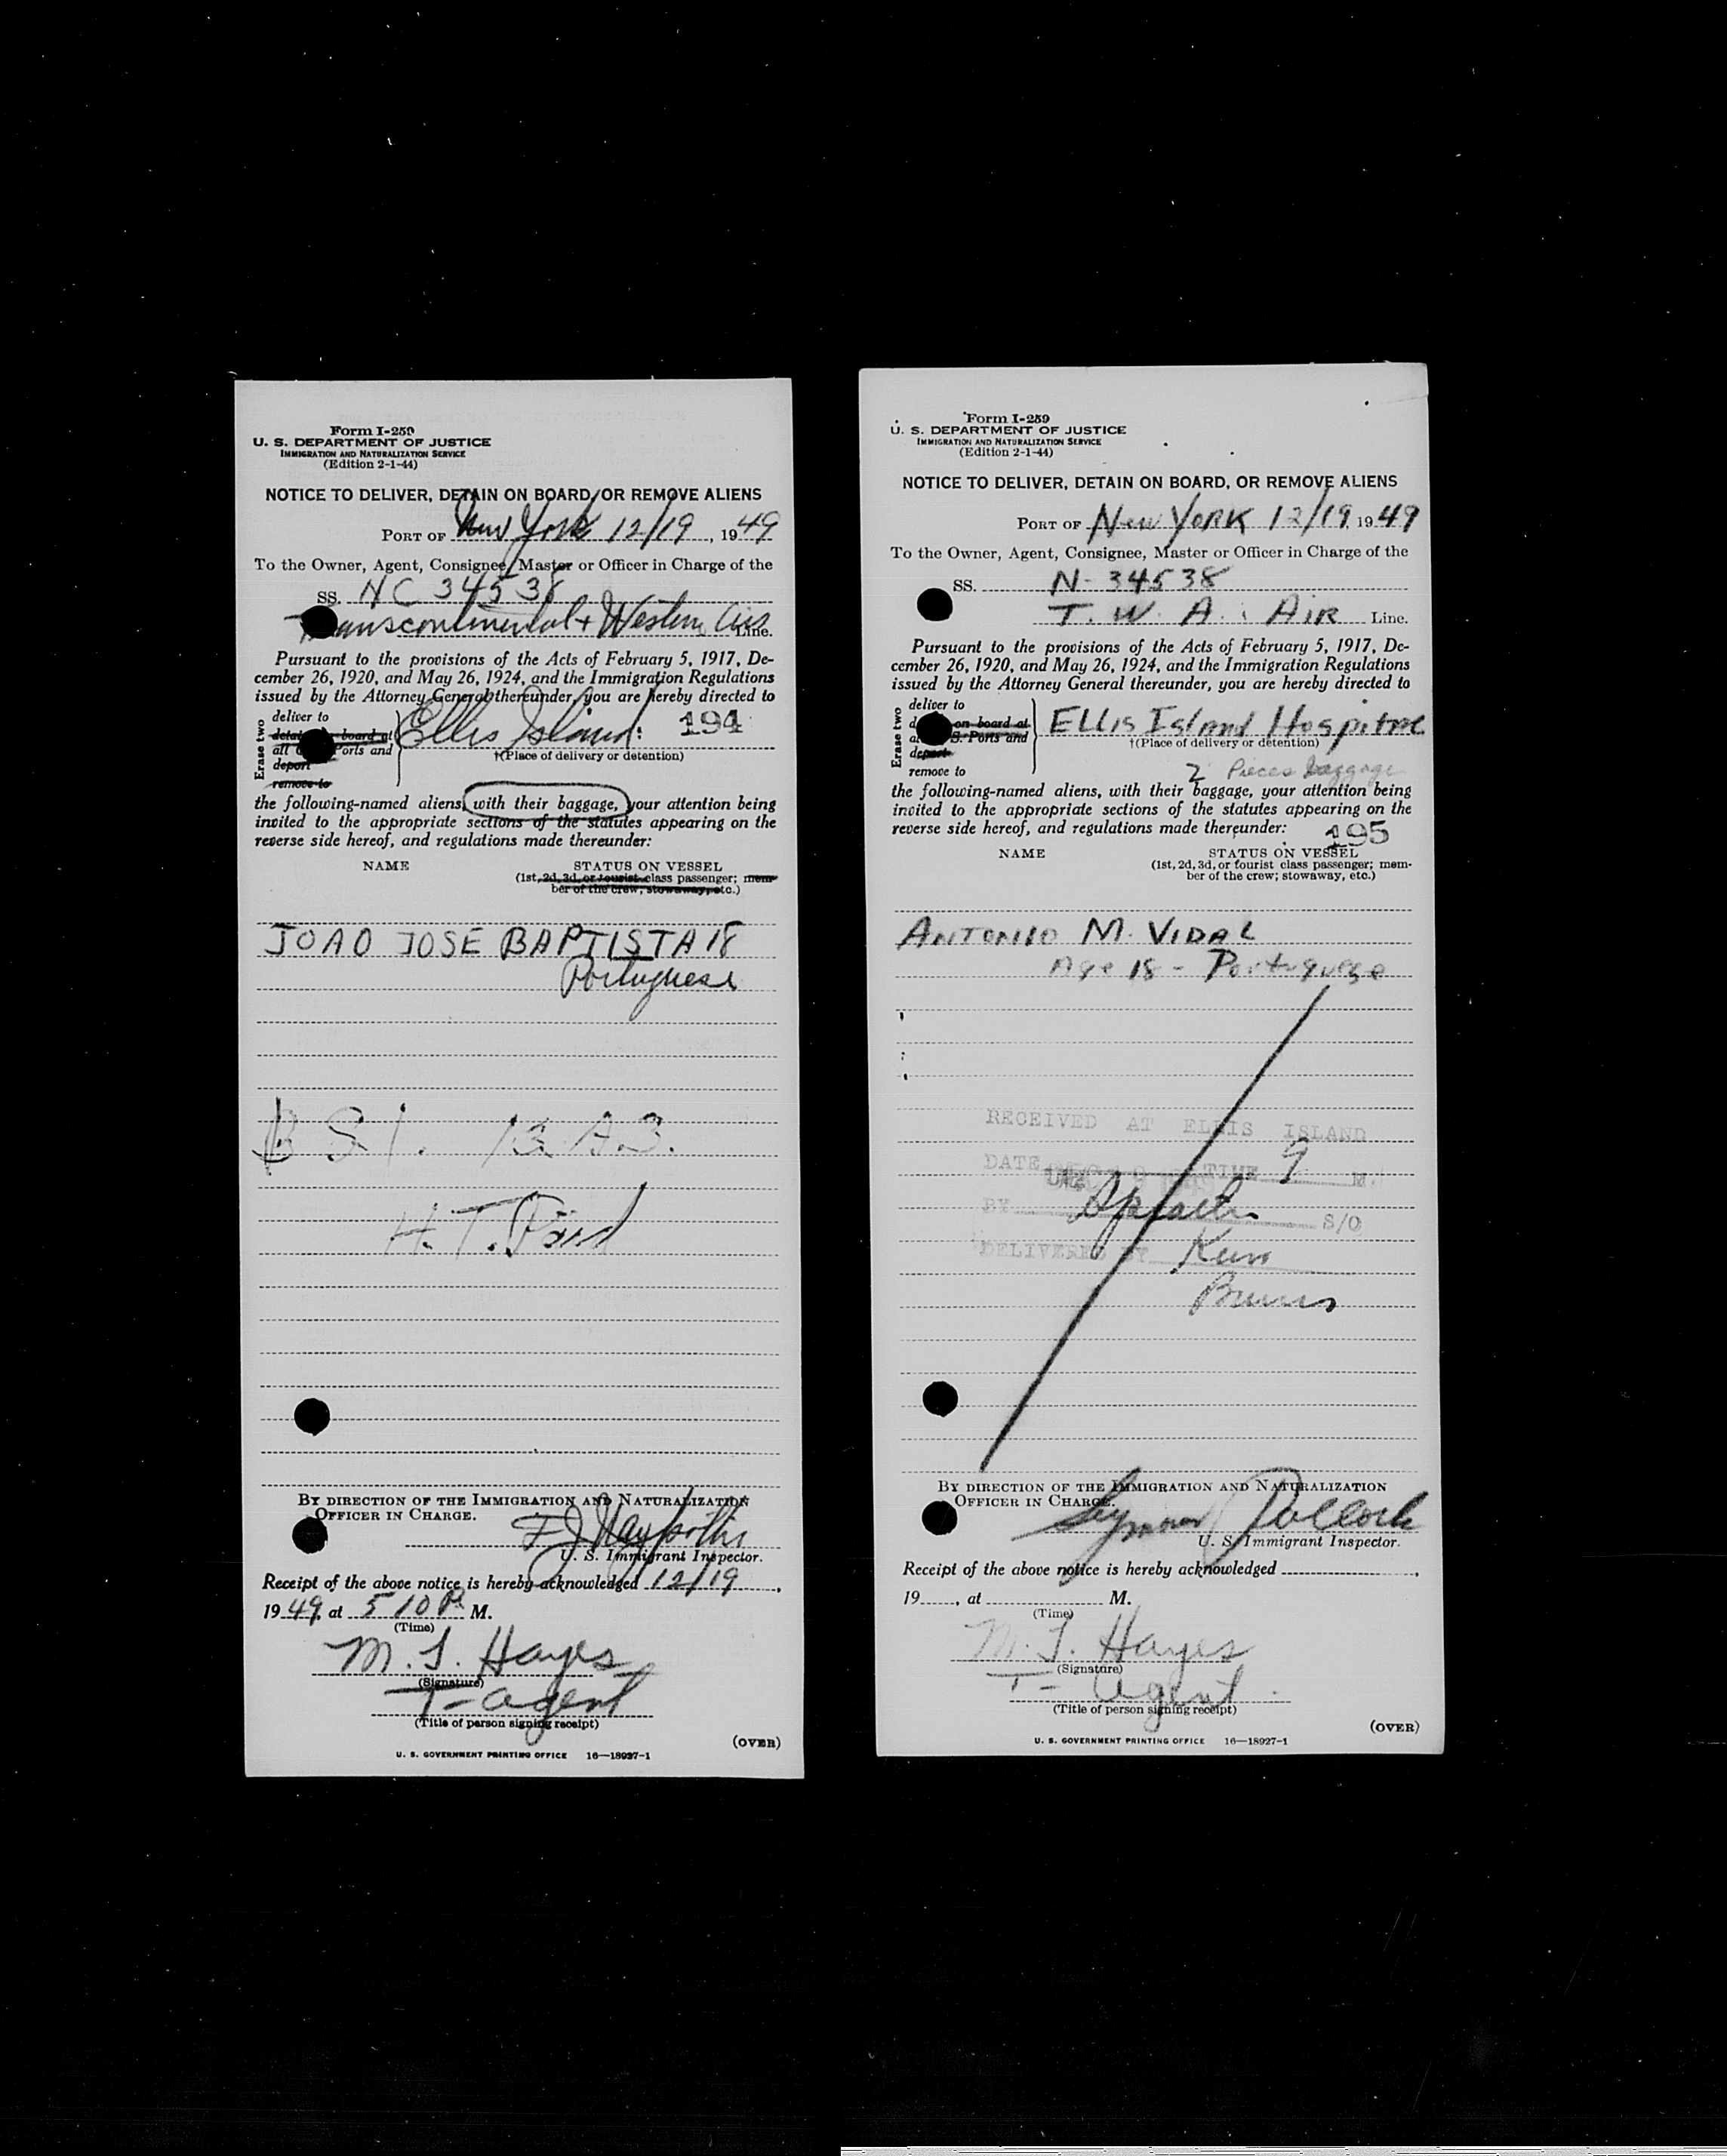 Form I-259
U. S. DEPARTMENT OF JUSTICE
IMMIGRATION AND NATURALIZATION SERVICE
(Edition 2-1-44)
NOTICE TO DELIVER, DETAIN ON BOARD, OR REMOVE ALIENS
PORT OF New York 12/19, 1949
To the Owner, Agent, Consignee, Master or Officer in Charge of the
SS. NC 34538
Transcontinental + Western Air Line.
Pursuant to the provisions of the Acts of February 5, 1917, De-
cember 26, 1920, and May 26, 1924, and the Immigration Regulations
issued by the Attorney General thereunder, you are hereby directed to
Erase two
deliver to
board at
Ports and
deport
remove to
Ellis Island 194
†(Place of delivery or detention)
the following-named aliens, with their baggage, your attention being
invited to the appropriate sections of the statutes appearing on the
reverse side hereof, and regulations made thereunder:
NAME STATUS ON VESSEL
(1st, 2d, 3d, or tourist class passenger; mem-
ber of the crew; stowaway, etc.)
JOAO JOSE BAPTISTA 18
Portuguese
B S I.
H. T. Paid
BY DIRECTION OF THE IMMIGRATION AND NATURALIZATION
OFFICER IN CHARGE.
U. S. Immigrant Inspector.
Receipt of the above notice is hereby acknowledged 12/19,
1949, at 5 10 P. M.
(Time)
M. J. Hayes
(Signature)
T- agent
(Title of person signing receipt)
(OVER)
U. S. GOVERNMENT PRINTING OFFICE 16—18927-1
Form I-259
U. S. DEPARTMENT OF JUSTICE
IMMIGRATION AND NATURALIZATION SERVICE
(Edition 2-1-44)
NOTICE TO DELIVER, DETAIN ON BOARD, OR REMOVE ALIENS
PORT OF New YORK 12/19 1949
To the Owner, Agent, Consignee, Master or Officer in Charge of the
SS. N-34538
T. W. A. AIR Line.
Pursuant to the provisions of the Acts of February 5, 1917, De-
cember 26, 1920, and May 26, 1924, and the Immigration Regulations
issued by the Attorney General thereunder, you are hereby directed to
Erase two
deliver to
on board at
S. Ports and
deport
remove to
ELLIS Island Hospital
†(Place of delivery or detention)
2 Pieces baggage
the following-named aliens, with their baggage, your attention being
invited to the appropriate sections of the statutes appearing on the
reverse side hereof, and regulations made thereunder:
195
NAME STATUS ON VESSEL
(1st, 2d, 3d, or tourist class passenger; mem-
ber of the crew; stowaway, etc.)
ANTONIO M. VIDAL
Age 18 - Portuguese
RECEIVED AT ELLIS ISLAND
DATE TIME 9 M.
BY S/O
DELIVERED BY
BY DIRECTION OF THE IMMIGRATION AND NATURALIZATION
OFFICER IN CHARGE.
Seymour Pollock
U. S. Immigrant Inspector.
Receipt of the above notice is hereby acknowledged
19 , at M.
(Time)
M. J. Hayes
(Signature)
T- agent
(Title of person signing receipt)
(OVER)
U. S. GOVERNMENT PRINTING OFFICE 16—18927-1